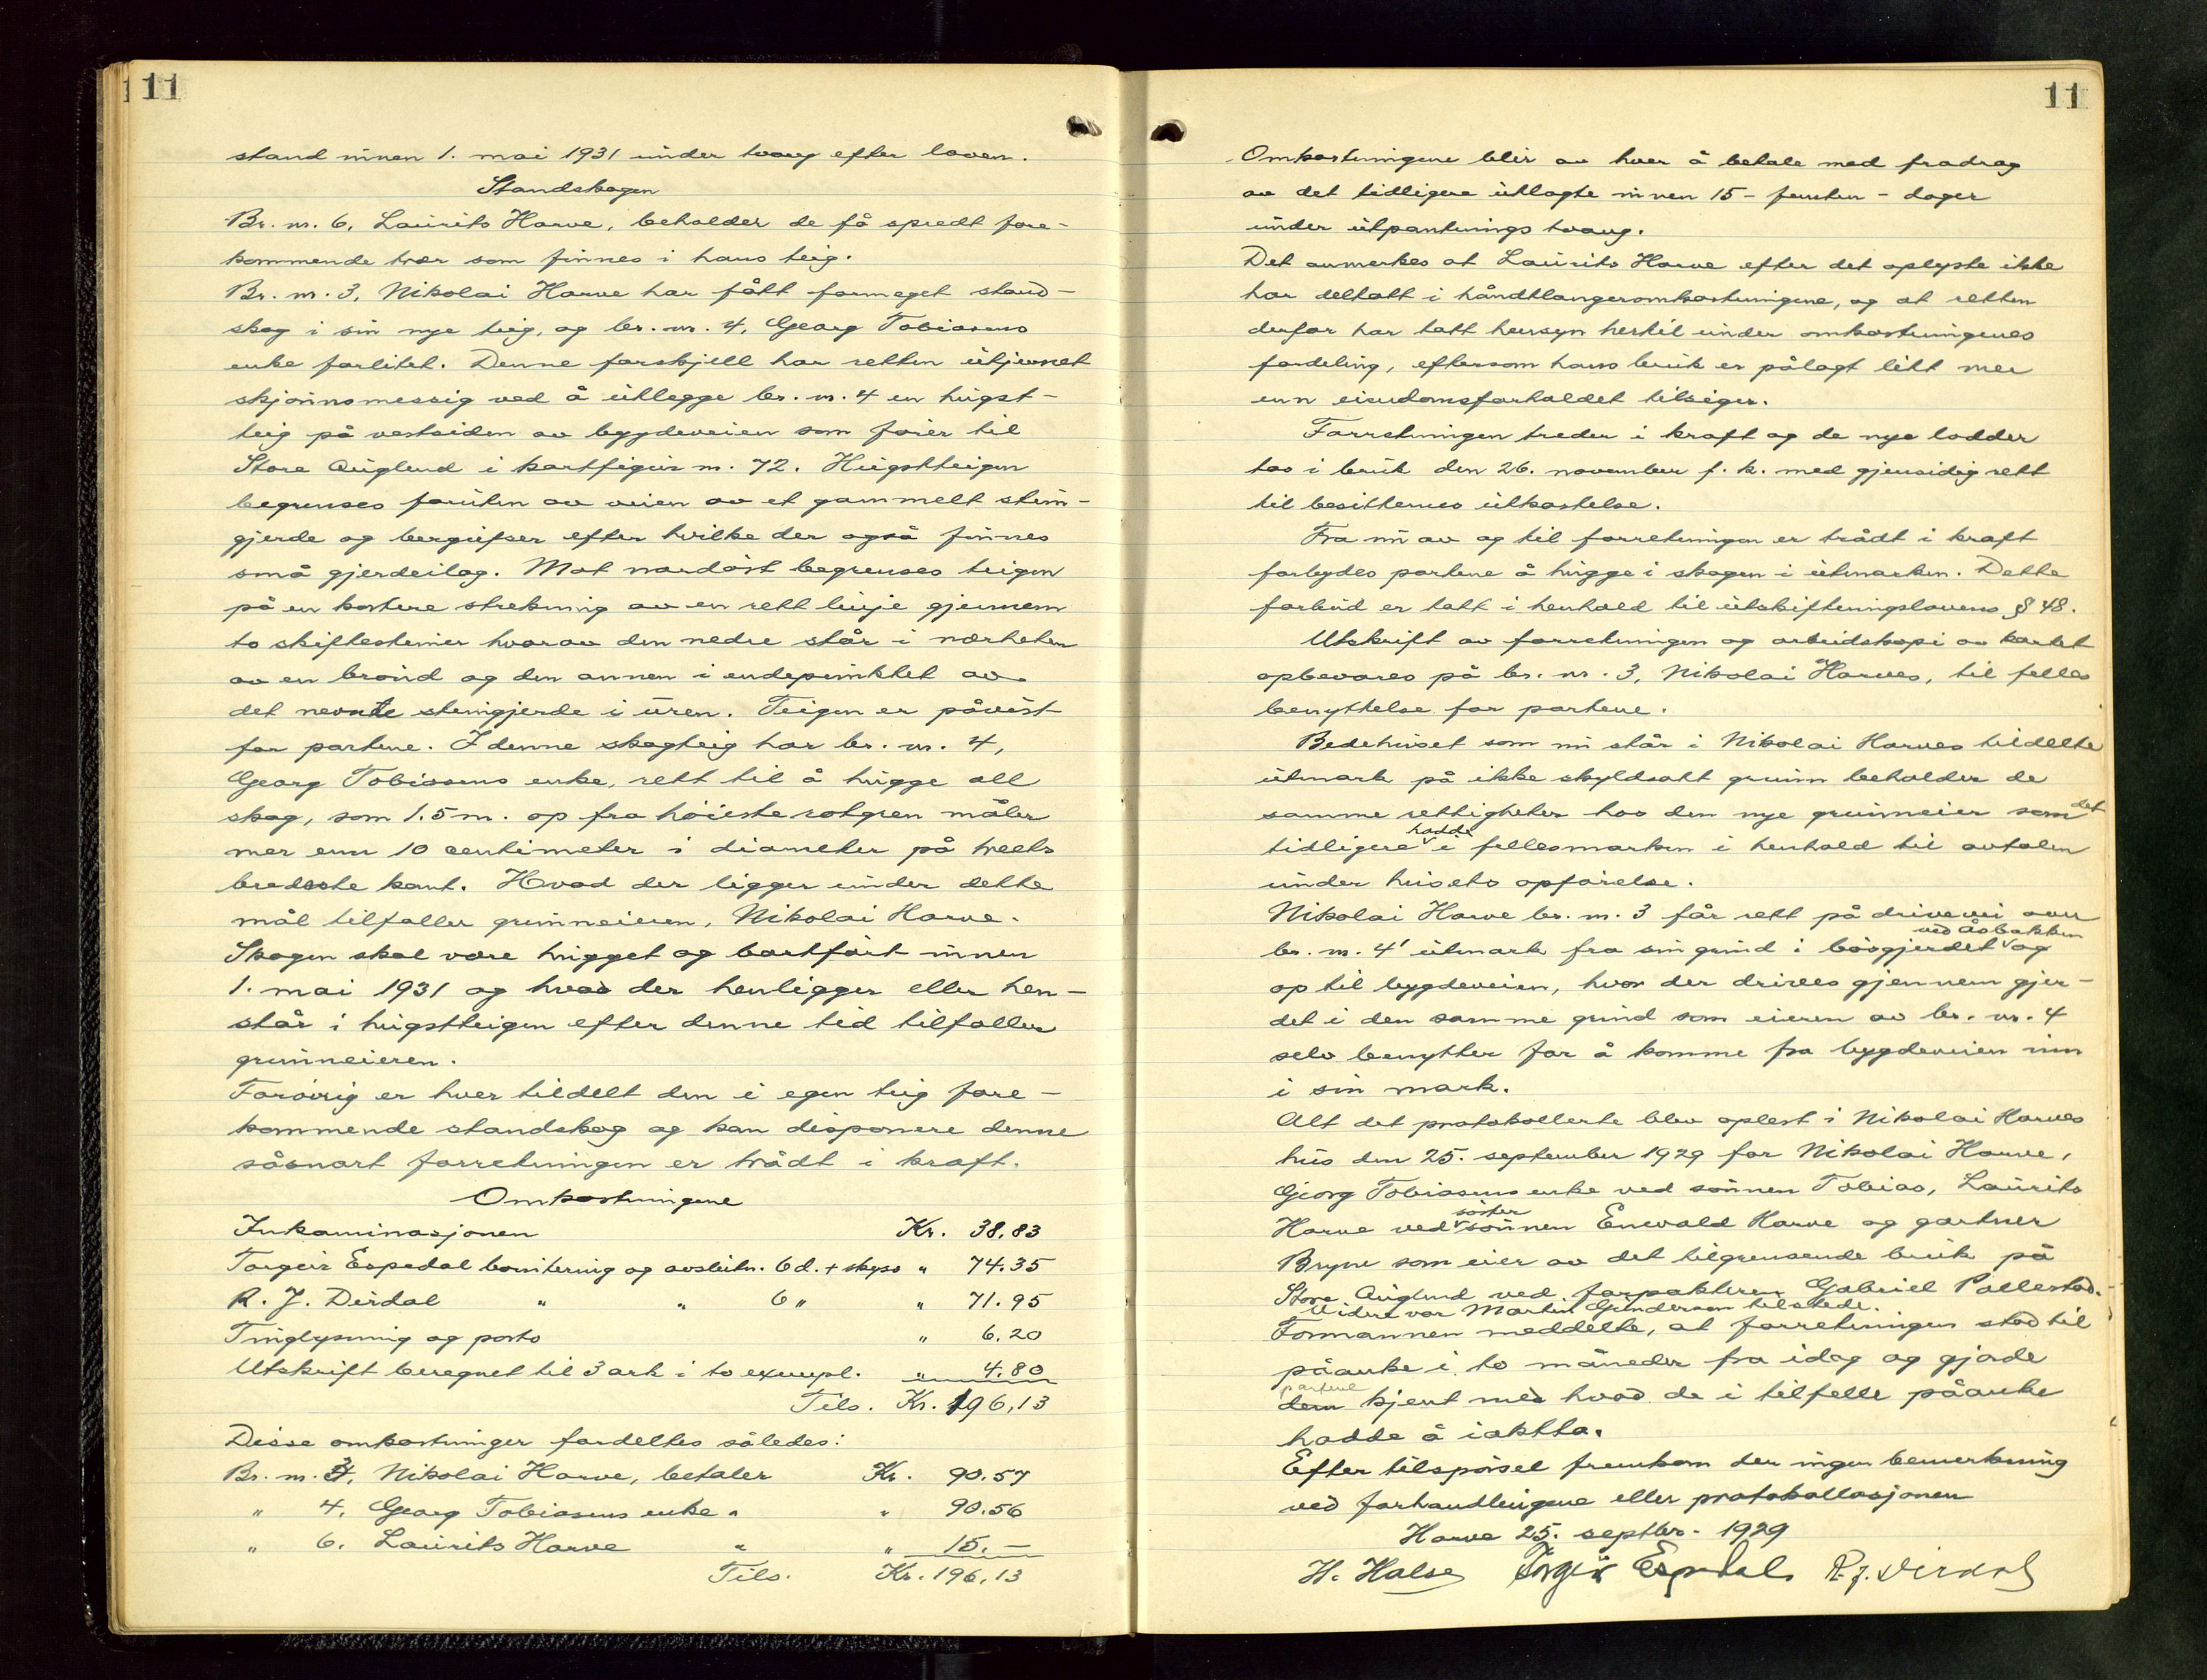 11
stand innen 1. mai 1931 under tvang efter loven.
Standskogen
Br. nr. 6, Laurits Harve, beholder de få spredt fore-
kommende trær som finnes i hans teig.
Br. nr. 3, Nikolai Harve har fått formeget stand-
skog i sin nye teig, og br. nr. 4, Georg Tobiasens
enke forlitet. Denne forskjell har retten utjevnet
skjønnsmessig ved å utlegge br. nr. 4 en hugst-
teig på vestsiden av bygdeveien som fører til
Store Auglend i kartfigur nr. 72. Hugstteigen
begrenses foruten av veien av et gammelt stein-
gjerde og bergufser efter hvilke der også finnes
små gjerdeilag. Mot nordøst begrenses teigen
på en kortere strekning av en rett linje gjennem
to skiftesteiner hvorav den nedre står i nærheten
av en brønd og den annen i endepunktet av
det nevnte steingjerde i uren. Teigen er påvist
for partene. I denne skogteig har br. nr. 4,
Georg Tobiasens enke, rett til å hugge all
skog, som 1.5 m. op fra høieste rotgren måler
mer enn 10 centimeter i diameter på treets
bredeste kant. Hvad der ligger under dette
mål tilfaller grunneieren, Nikolai Harve.
Skogen skal være hugget og bortført innen
1. mai 1931 og hvad der henligger eller hen-
står i hugstteigen efter denne tid tilfaller
grunneieren.
Forøvrig er hver tildelt den i egen teig fore-
kommende standskog og kan disponere denne
såsnart forretningen er trådt i kraft.
Omkostningene
Inkaminasjonen Kr. 38,83
Torgeir Espedal bonitering og avslutn. 6 d. + skyss " 74.35
R. J. Dirdal " " 6 " " 71.95
Tinglysning og porto " 6.20
Utskrift beregnet til 3 ark i to exempl. " 4.80
Tils. Kr. 196,13
Disse omkostninger fordeltes således:
Br. nr. 3, Nikolai Harve, betaler Kr. 90.57
" 4, Georg Tobiasens enke " " 90.56
" 6. Laurits Harve " " 15.—
Tils. Kr. 196,13
11
Omkostningene blir av hver å betale med fradrag
av det tidligere utlagte innen 15 - femten - dager
under utpantnings tvang.
Det anmerkes at Laurits Harve efter det oplyste ikke
har deltatt i håndtlangeromkostningene, og at retten
derfor har tatt hensyn hertil under omkostningenes
fordeling, eftersom hans bruk er pålagt litt mer
enn eiendomsforholdet tilsiger.
Forretningen treder i kraft og de nye lodder
tas i bruk den 26. november f. k. med gjensidig rett
til besitternes utkastelse.
Fra nu av og til forretningen er trådt i kraft
forbydes partene å hugge i skogen i utmarken. Dette
forbud er tatt i henhold til utskiftningslovens § 48.
Utskrift av forretningen og arbeidskopi av kartet
opbevares på br. nr. 3, Nikolai Harves, til felles
benyttelse for partene.
Bedehuset som nu står i Nikolai Harves tildelte
utmark på ikke skyldsatt grunn beholder de
samme rettigheter hos den nye grunneier som det
tidligere hadde i fellesmarken i henhold til avtalen
under husets opførelse.
Nikolai Harve br. nr. 3 får rett på drivevei over
ved Åsbakken
br. nr. 4' utmark fra sin grind i bøsgjerdet og
op til bygdeveien, hvor der drives gjennem gjer-
det i den samme grind som eieren av br. nr. 4
selv benytter for å komme fra bygdeveien inn
i sin mark.
Alt det protokollerte blev oplest i Nikolai Harves
hus den 25. september 1929 for Nikolai Harve,
Georg Tobiasens enke ved sønnen Tobias, Laurits
Harve ved søstersønnen Enevald Harve og gartner
Bryne som eier av det tilgrensende bruk på
Store Auglend ved forpakteren Gabriel Pollestad.
Videre var Martin Gundersen tilstede.
Formannen meddelte, at forretningen stod til
påanke i to måneder fra idag og gjorde
partene
dem kjent med hvad de i tilfelle påanke
hadde å iaktta.
Efter tilspørsel fremkom der ingen bemerkning
ved forhandlingene eller protokollasjonen
Harve 25. septbr. 1929
H. Halse Torgeir Espedal R. J. Dirdal